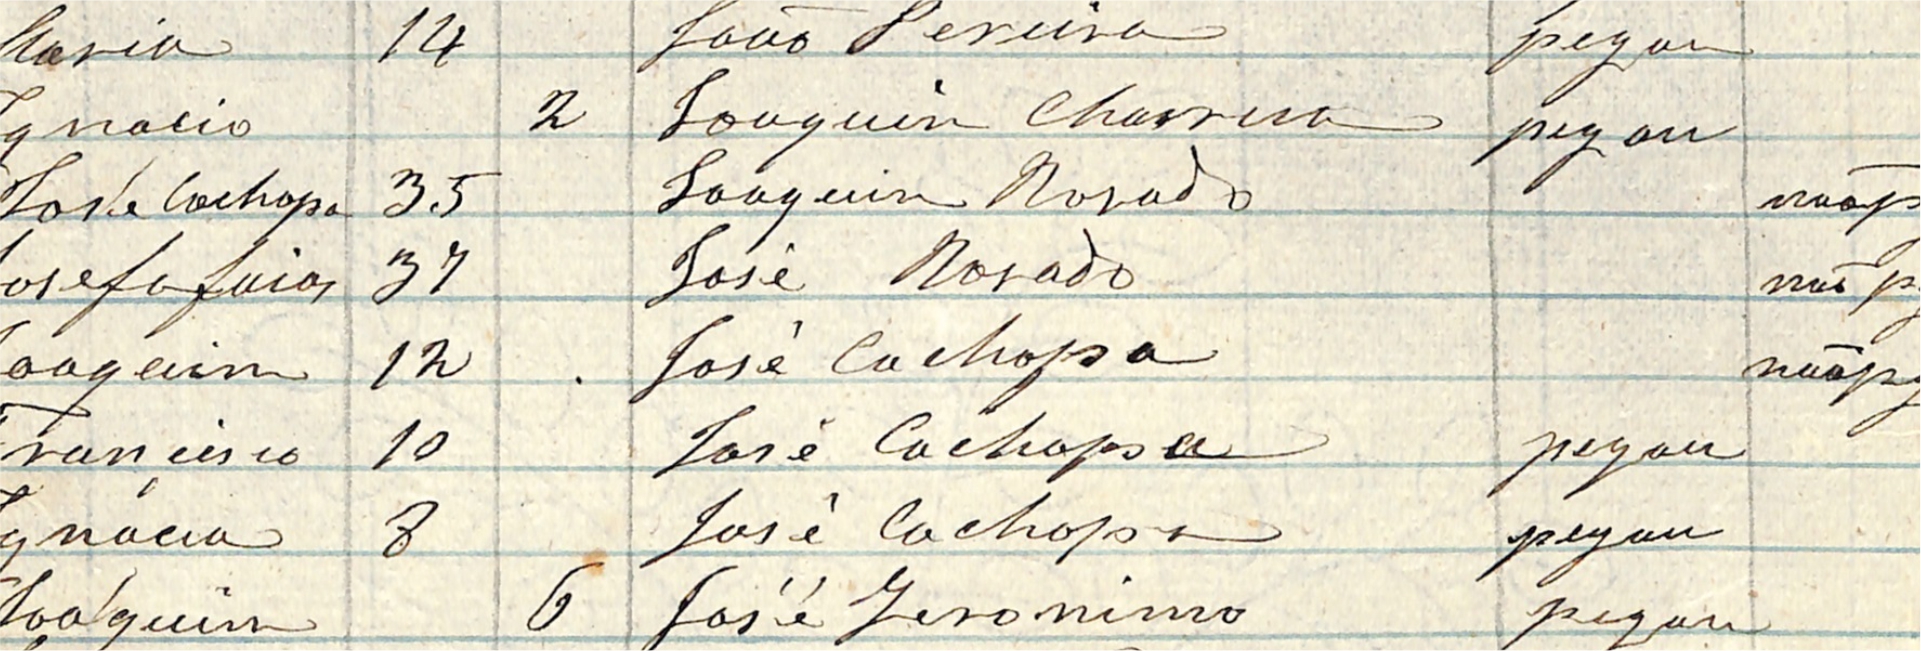 Maria 14 João Pereira pegou
Ignacio 2 Joaquim Charrua pegou
José Cachopa 35 Joaquim Rosado não p
Josefa 37 José Rosado não p
Joaquim 12 José Cachopa não peg
Francisco 10 José Cachopa pegou
Ignácia 8 José Cachopa pegou
Joaquim 6 José Jeronimo pegou